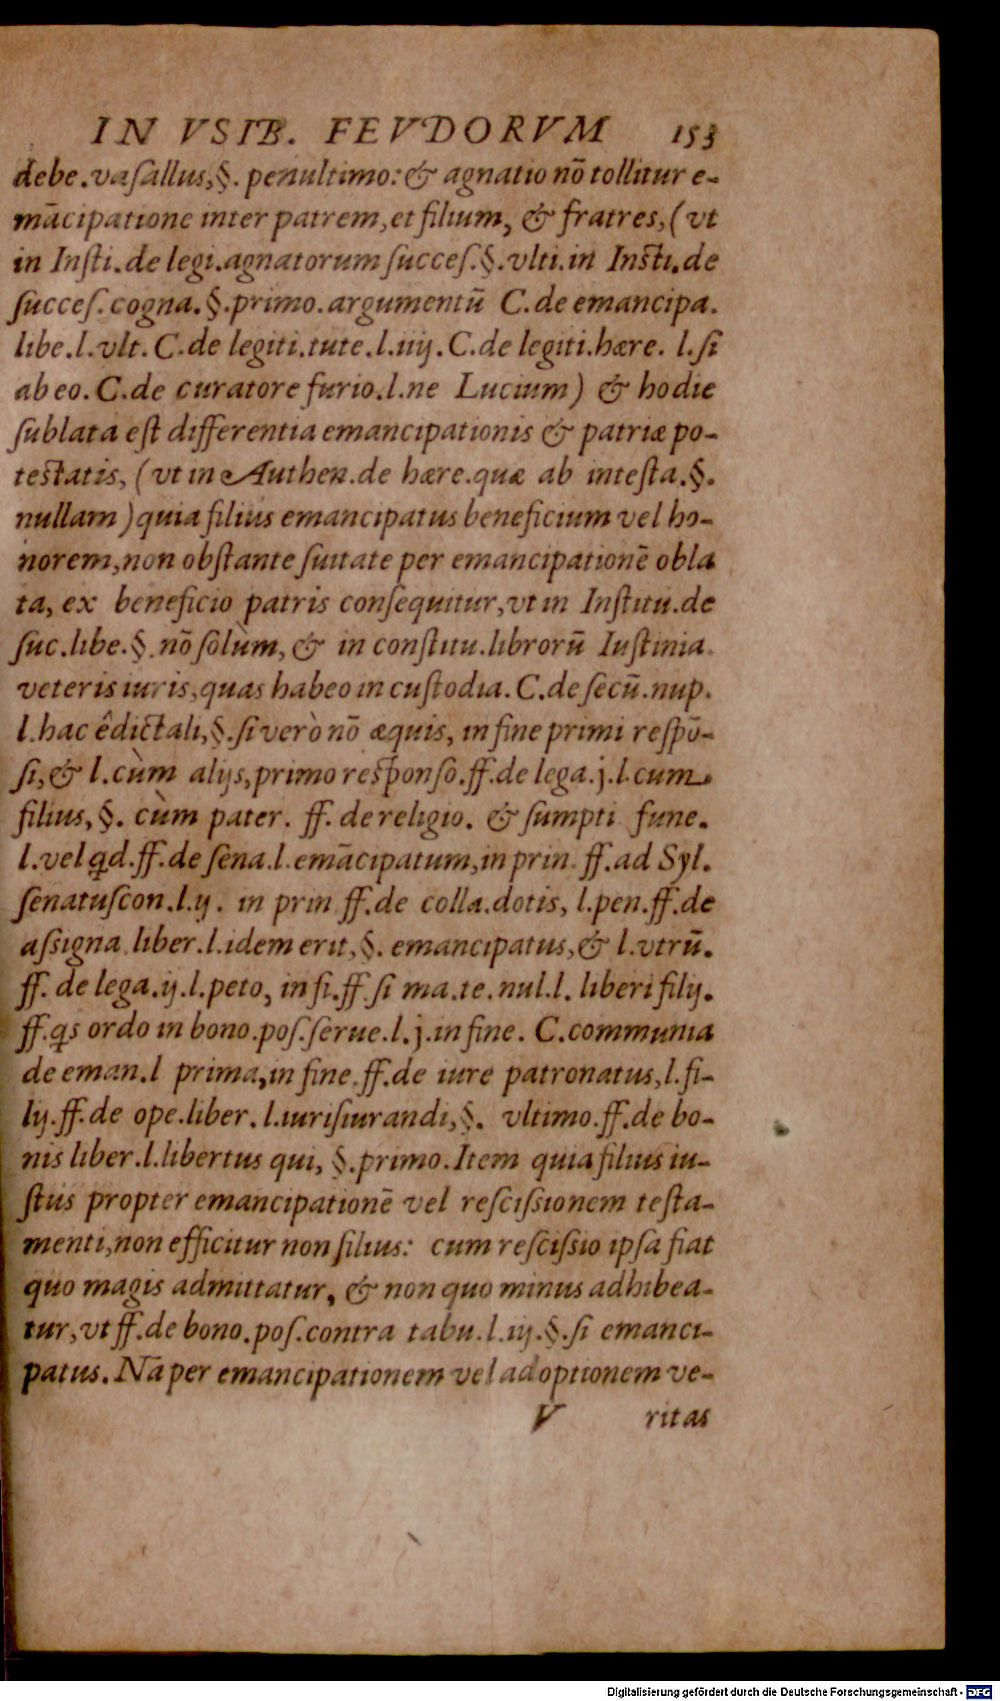 IN VSIB. FEVDORVM 153
debe.vaſallus,§. penultimo:& agnatio nō tollitur e-
mācipatione inter patrem,et filium, & fratres,(vt
in Inſti.de legi.agnatorum ſucceſ.§.vlti.in Inſti.de
ſucceſ.cogna.§.primo.argumentū C.de emancipa.
libe.l.vlt.C.de legiti.tute.l.iiij.C.de legiti.hære. l.ſi
ab eo. C.de curatore furio.l.ne Lucium) & hodie
ſublata eſt differentia emancipationis & patriæ po-
teſtatis, (vt in Authen.de hære.quæ ab inteſta.§.
nullam)quia filius emancipatus beneficium vel ho-
norem,non obſtante ſuitate per emancipationē obla
ta, ex beneficio patris conſequitur,vt in Inſtitu.de
ſuc.libe.§.nō ſolùm, & in conſtitu.librorū Iuſtinia.
veteris iuris,quas habeo in cuſtodia.C.de ſecū.nup.
l.hac êdictali,§.ſi verò nō æquis, in fine primi reſpō-
ſi,& l.cùm alijs,primo reſponſo.ff.de lega.j.l.cum
filius,§. cùm pater. ff. de religio. & ſumpti fune.
l.vel qd.ff.de ſena.l.emācipatum,in prin. ff.ad Syl.
ſenatuſcon.l.ij. in prin ff.de colla.dotis, l.pen.ff.de
aſsigna.liber.l.idem erit,§. emancipatus,& l.vtrū.
ff. de lega.ij.l.peto, in fi.ff ſi ma.te.nul.l. liberi filij.
ff.qs ordo in bono.poſ.ſerue.l.j.in fine. C.communia
de eman.l prima,in fine.ff.de iure patronatus,l.fi-
lij.ff.de ope.liber.l.iuriſiurandi,§. vltimo.ff.de bo-
nis liber.l.libertus qui, §.primo.Item quia filius iu-
ſtus propter emancipationē vel reſciſsionem teſta-
menti,non efficitur non filius: cum reſciſsio ipſa fiat
quo magis admittatur, & non quo minus adhibea-
tur,vt ff.de bono.poſ.contra tabu.l.iij.§.ſi emanci-
patus.Nā per emancipationem vel adoptionem ve-
V ritas
Digitalisierung gefördert durch die Deutsche Forschungsgemeinschaft - DFG